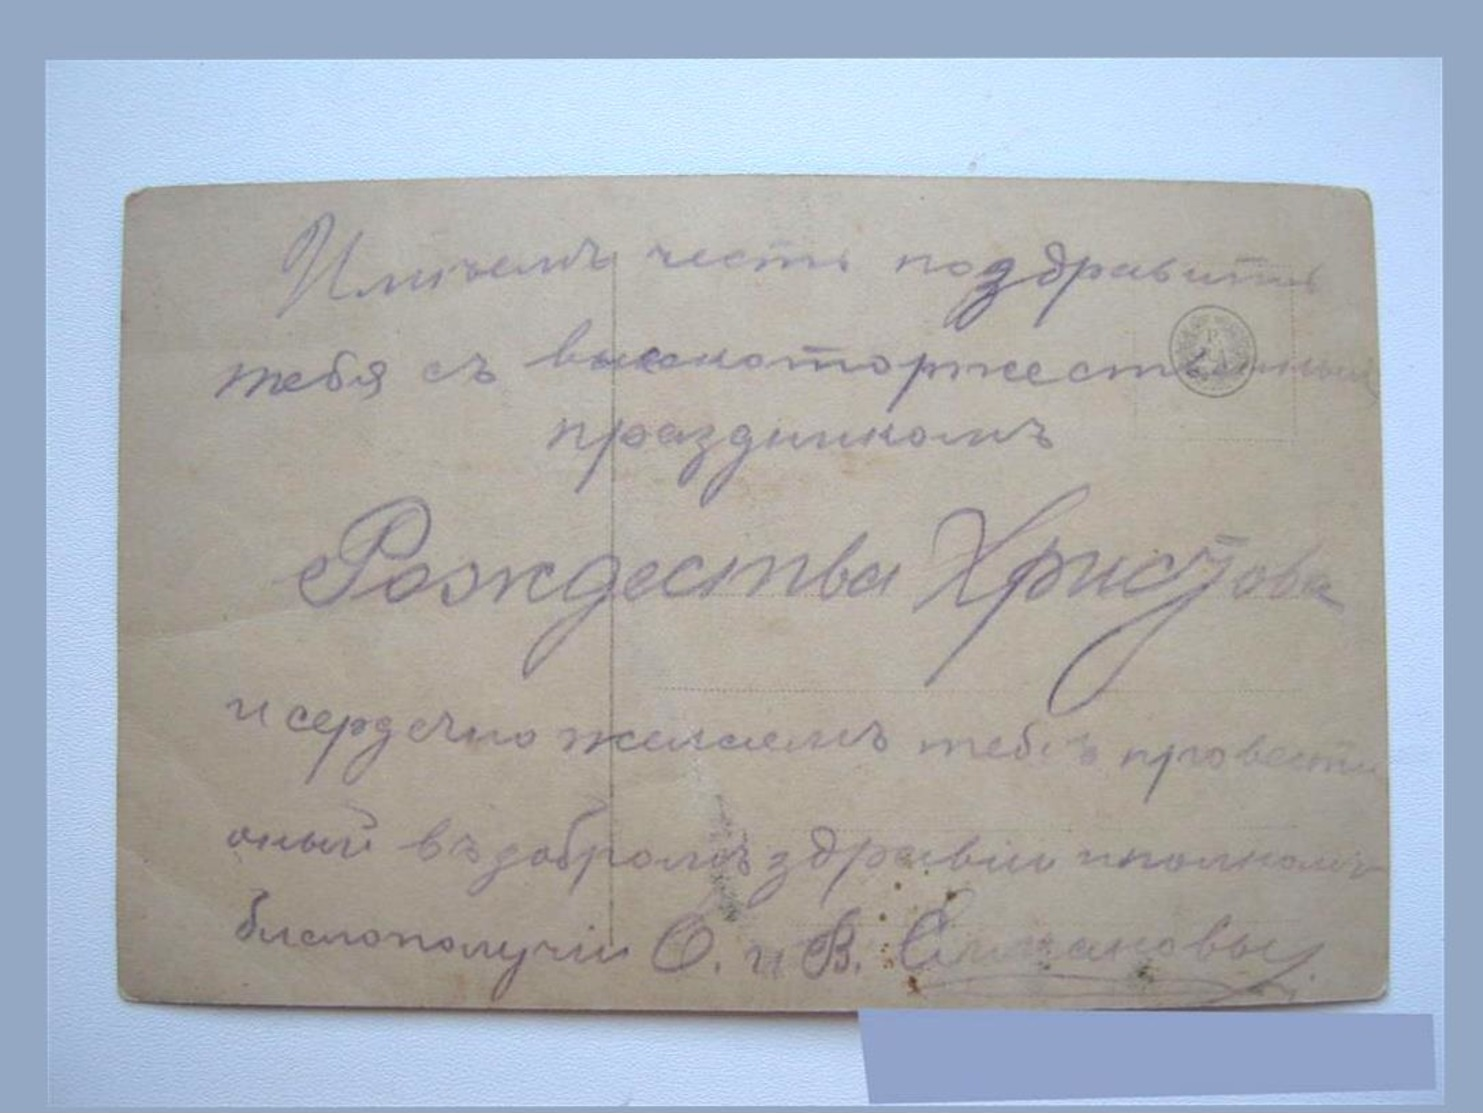 Имѣемъ честь поздравить
тебя съ высокоторжественнымъ
праздникомъ
Рождества Христова
и сердечно желаемъ тебѣ провести
оный въ добромъ здравіи и полномъ
благополучіи О. и В.